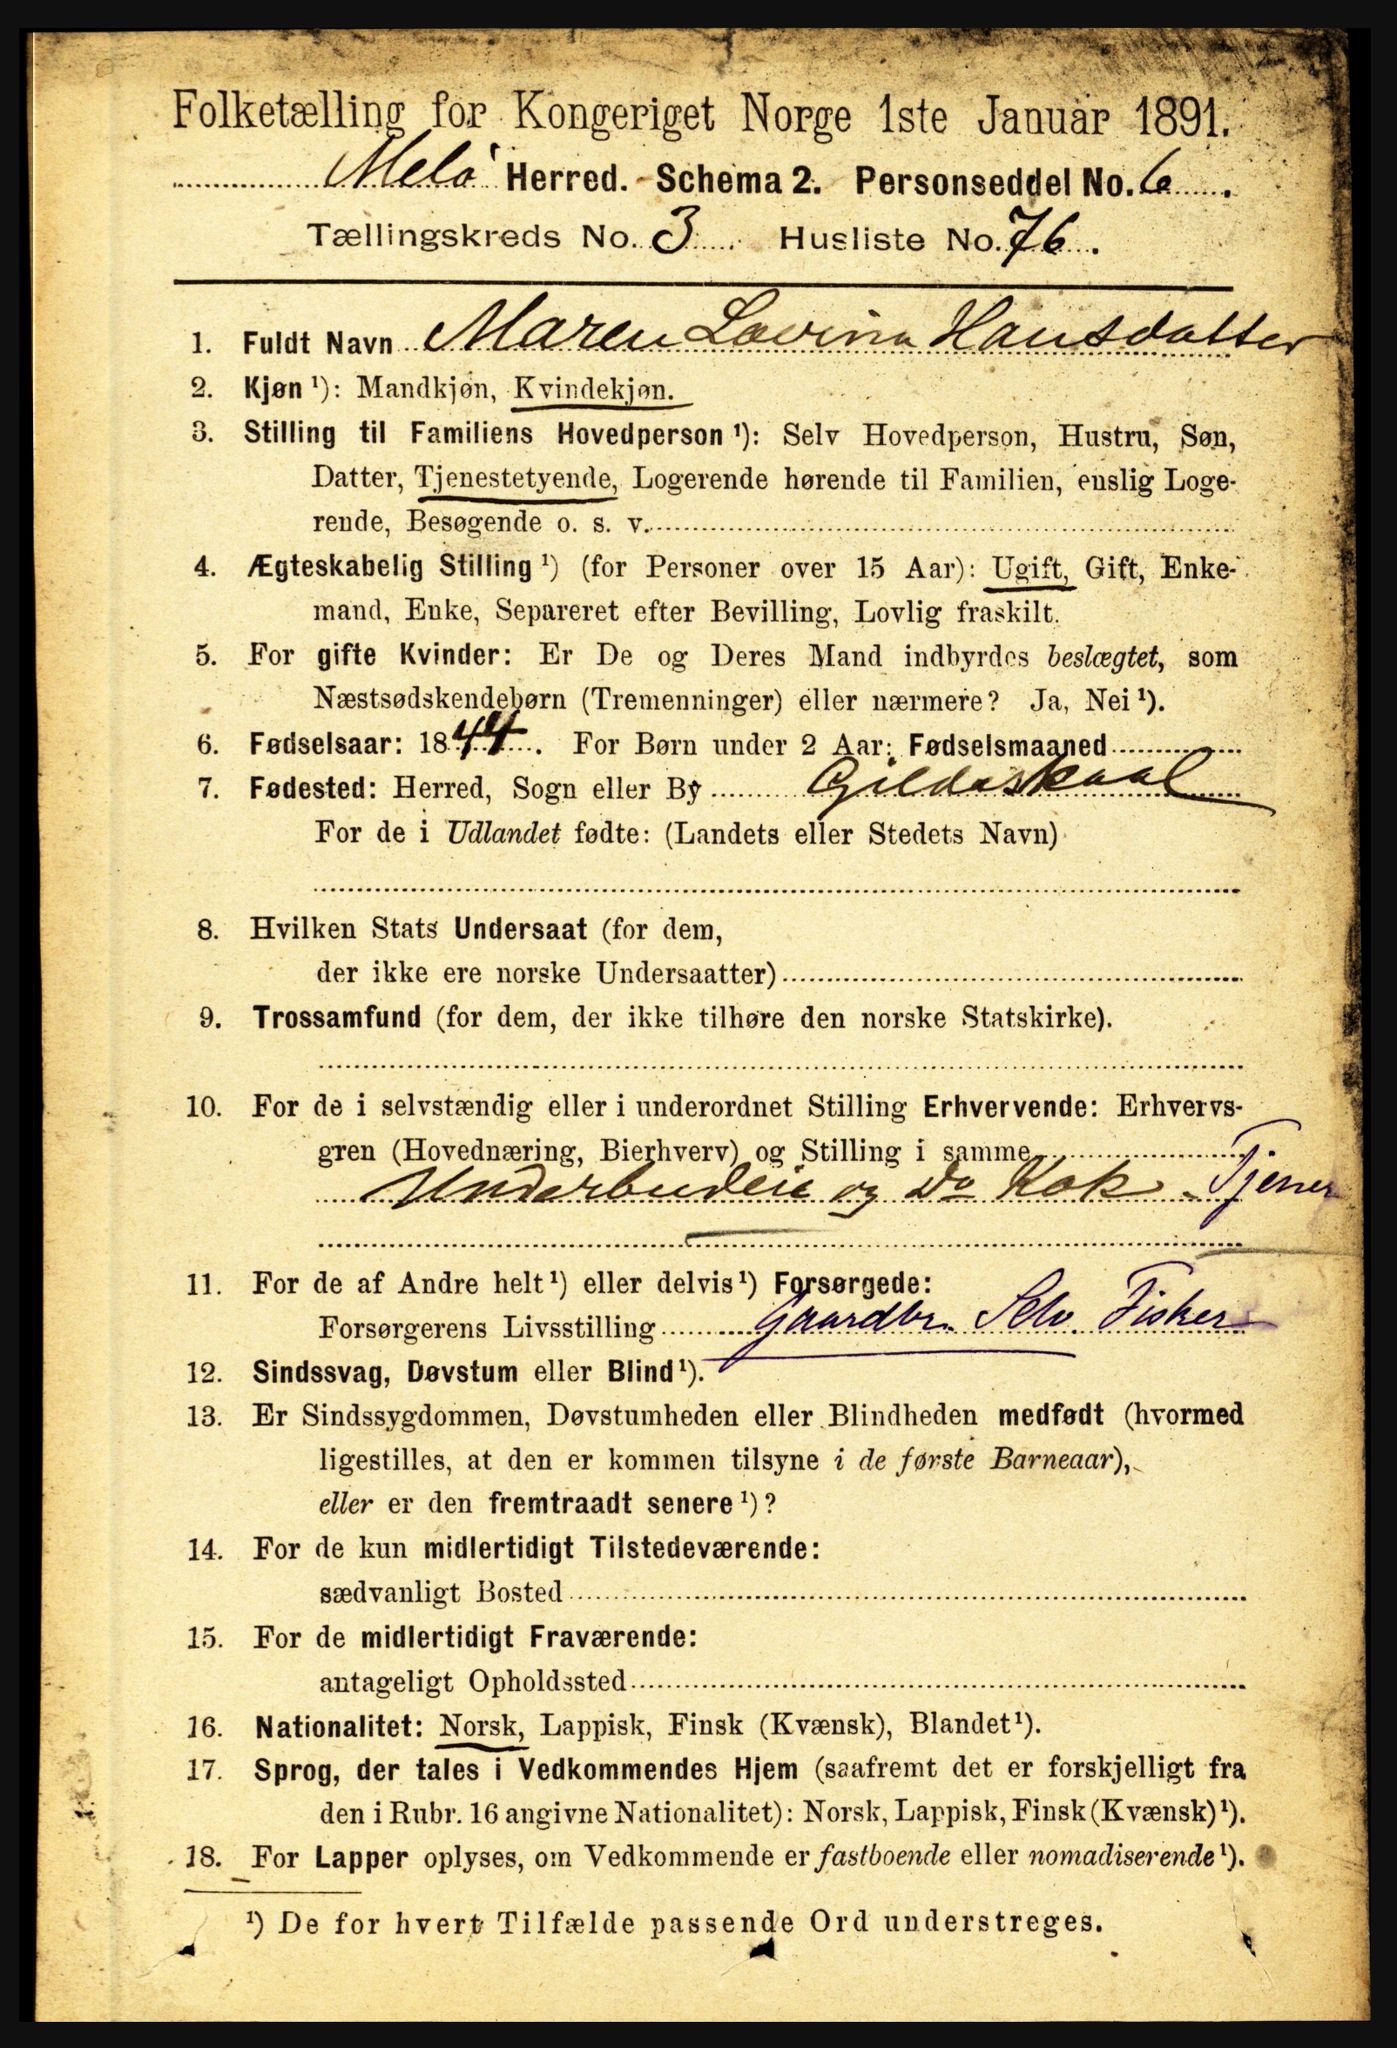 Folketælling for Kongeriget Norge 1ste Januar 1891.
Melø Herred. Schema 2. Personseddel No. 6.
Tællingskreds No. 3. Husliste No. 76.
1. Fuldt Navn Maren Lovina Hansdatter
2. Kjøn ¹): Mandkjøn, Kvindekjøn.
3. Stilling til Familiens Hovedperson ¹): Selv Hovedperson, Hustru, Søn,
Datter, Tjenestetyende, Logerende hørende til Familien, enslig Loge-
rende, Besøgende o. s. v.
4. Ægteskabelig Stilling ¹) (for Personer over 15 Aar): Ugift, Gift, Enke-
mand, Enke, Separeret efter Bevilling, Lovlig fraskilt.
5. For gifte Kvinder: Er De og Deres Mand indbyrdes beslægtet, som
Næstsødskendebørn (Tremenninger) eller nærmere? Ja, Nei ¹).
6. Fødselsaar: 1844. For Børn under 2 Aar: Fødselsmaaned
7. Fødested: Herred, Sogn eller By Gildeskaal
For de i Udlandet fødte: (Landets eller Stedets Navn)
8. Hvilken Stats Undersaat (for dem,
der ikke ere norske Undersaatter)
9. Trossamfund (for dem, der ikke tilhøre den norske Statskirke).
10. For de i selvstændig eller i underordnet Stilling Erhvervende: Erhvervs-
gren (Hovednæring, Bierhverv) og Stilling i samme
Underbudeie og Do Kok Tjener
11. For de af Andre helt ¹) eller delvis ¹) Forsørgede:
Forsørgerens Livsstilling Gaardbr. Selv. Fisker
12. Sindssvag, Døvstum eller Blind ¹).
13. Er Sindssygdommen, Døvstumheden eller Blindheden medfødt (hvormed
ligestilles, at den er kommen tilsyne i de første Barneaar),
eller er den fremtraadt senere ¹)?
14. For de kun midlertidigt Tilstedeværende:
sædvanligt Bosted
15. For de midlertidigt Fraværende:
antageligt Opholdssted
16. Nationalitet: Norsk, Lappisk, Finsk (Kvænsk), Blandet ¹).
17. Sprog, der tales i Vedkommendes Hjem (saafremt det er forskjelligt fra
den i Rubr. 16 angivne Nationalitet): Norsk, Lappisk, Finsk (Kvænsk) ¹).
18. For Lapper oplyses, om Vedkommende er fastboende eller nomadiserende ¹).
¹) De for hvert Tilfælde passende Ord understreges.